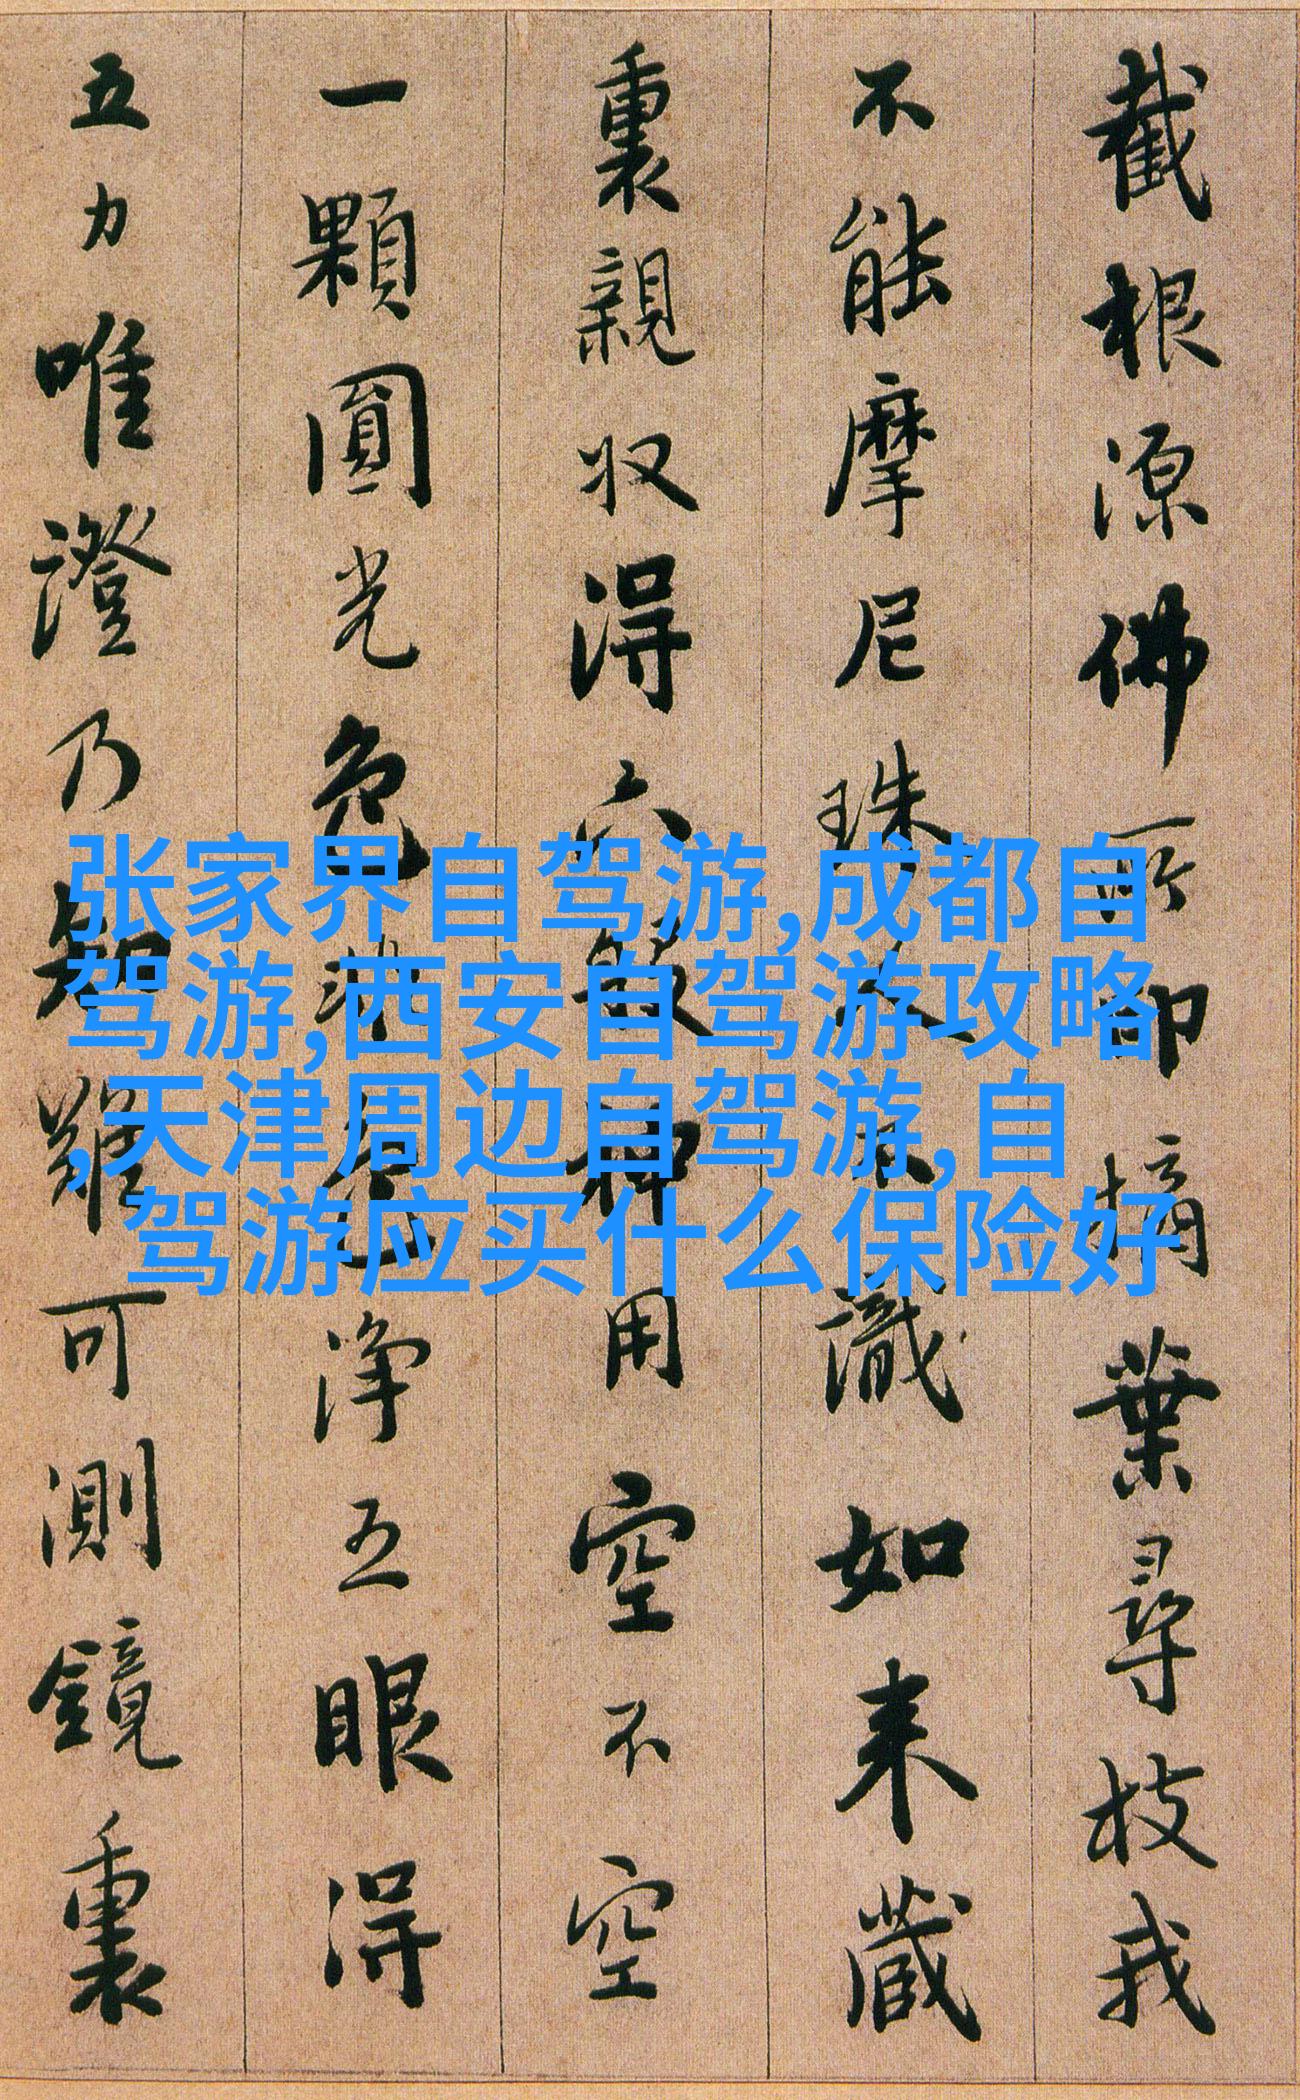 截根源佛所印摘葉尋枝我
不能摩尼珠人不識如来藏
裏親収得六般神用空不空
一顆圓光色非色淨五眼得
五力唯證乃知難可測鏡裏
张家界自驾游,成都自
驾游,西安自驾游攻略
,天津周边自驾游,自
驾游应买什么保险好